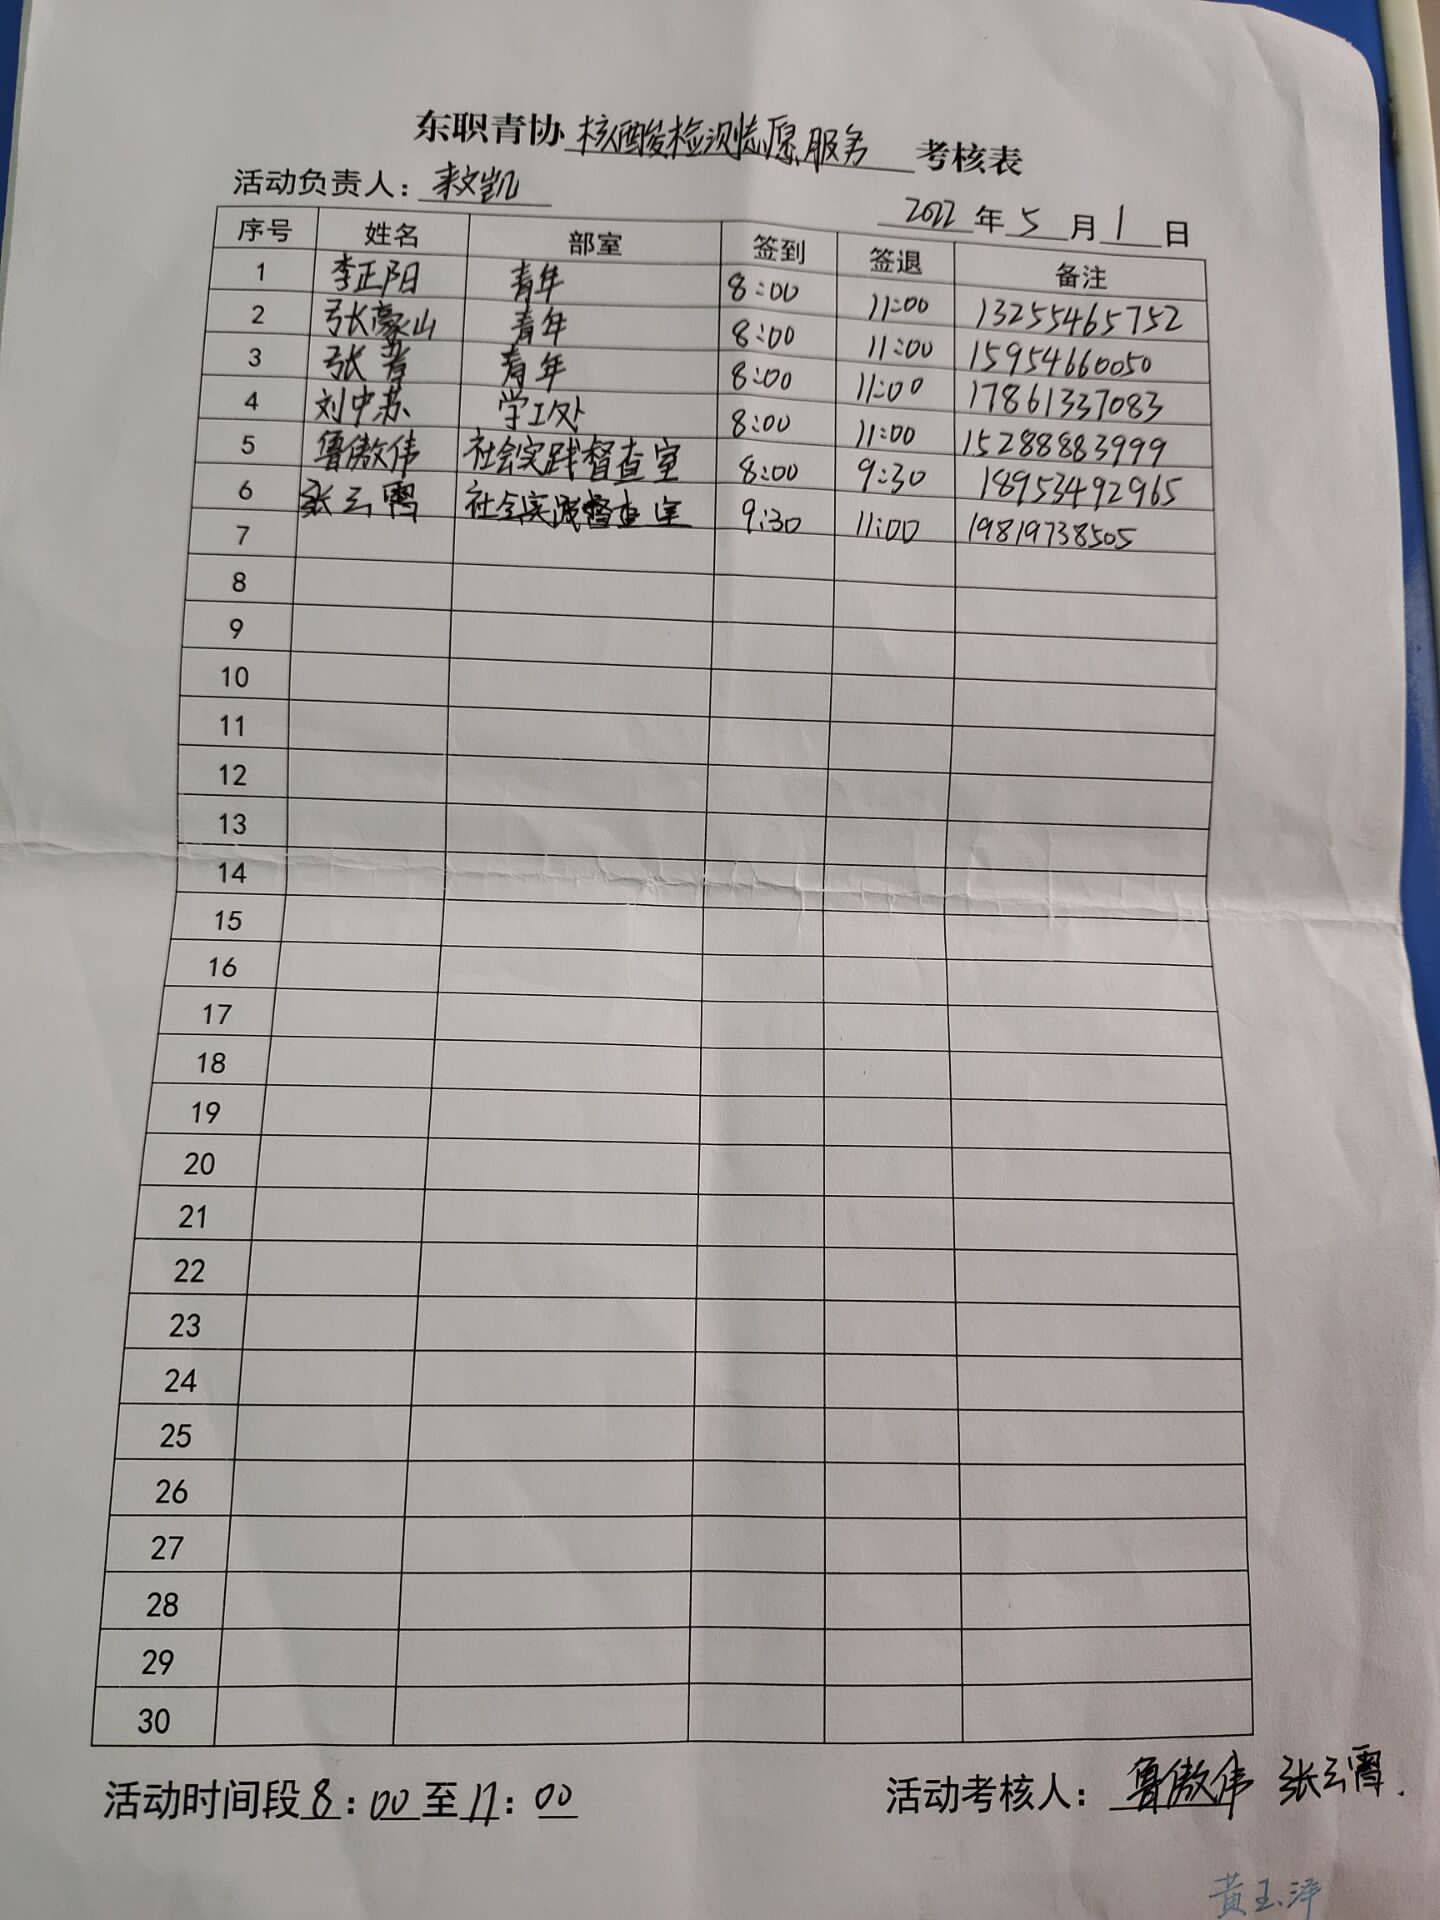 东职青协 核酸检测志愿服务 考核表
活动负责人： 来文凯
2022 年 5 月 1 日
序号 姓名 部室 签到 签退 备注
1 李正阳 青年 8:00 11:00 13255465752
2 张豪山 青年 8:00 11:00 15954660050
3 张 青年 8:00 11:00 17861337083
4 刘中苏 学工处 8:00 11:00 15288883999
5 鲁傲伟 社会实践督查室 8:00 9:30 18953492965
6 张云霄 社会实践督查室 9:30 11:00 19819738505
7
8
9
10
11
12
13
14
15
16
17
18
19
20
21
22
23
24
25
26
27
28
29
30
活动时间段 8：00 至 11：00 活动考核人： 鲁傲伟 张云霄.
黄玉泽